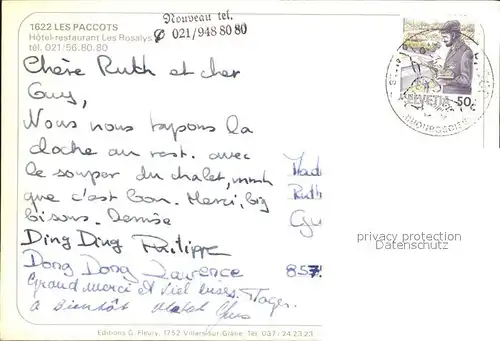 1622 LES PACCOTS
Hôtel-restaurant Les Rosalys
tél. 021/56.80.80
Nouveau tel.
021/948 80 80
HELVETIA 50
Chère Ruth et cher
Guy,
Nous nous tapons la
cloche au rest. avec
le souper du chalet, mmh
que c'est bon. Merci, big
bisous. Denise
Ding Ding Philippe
Dong Dong Laurence
Grand merci et viel bises.
à bientôt
Mad
Ruth
Gu
857
privacy protection
Datenschutz
Editions G. Fleury, 1752 Villars-sur-Glâne. Tél. 037 - 24 23 23